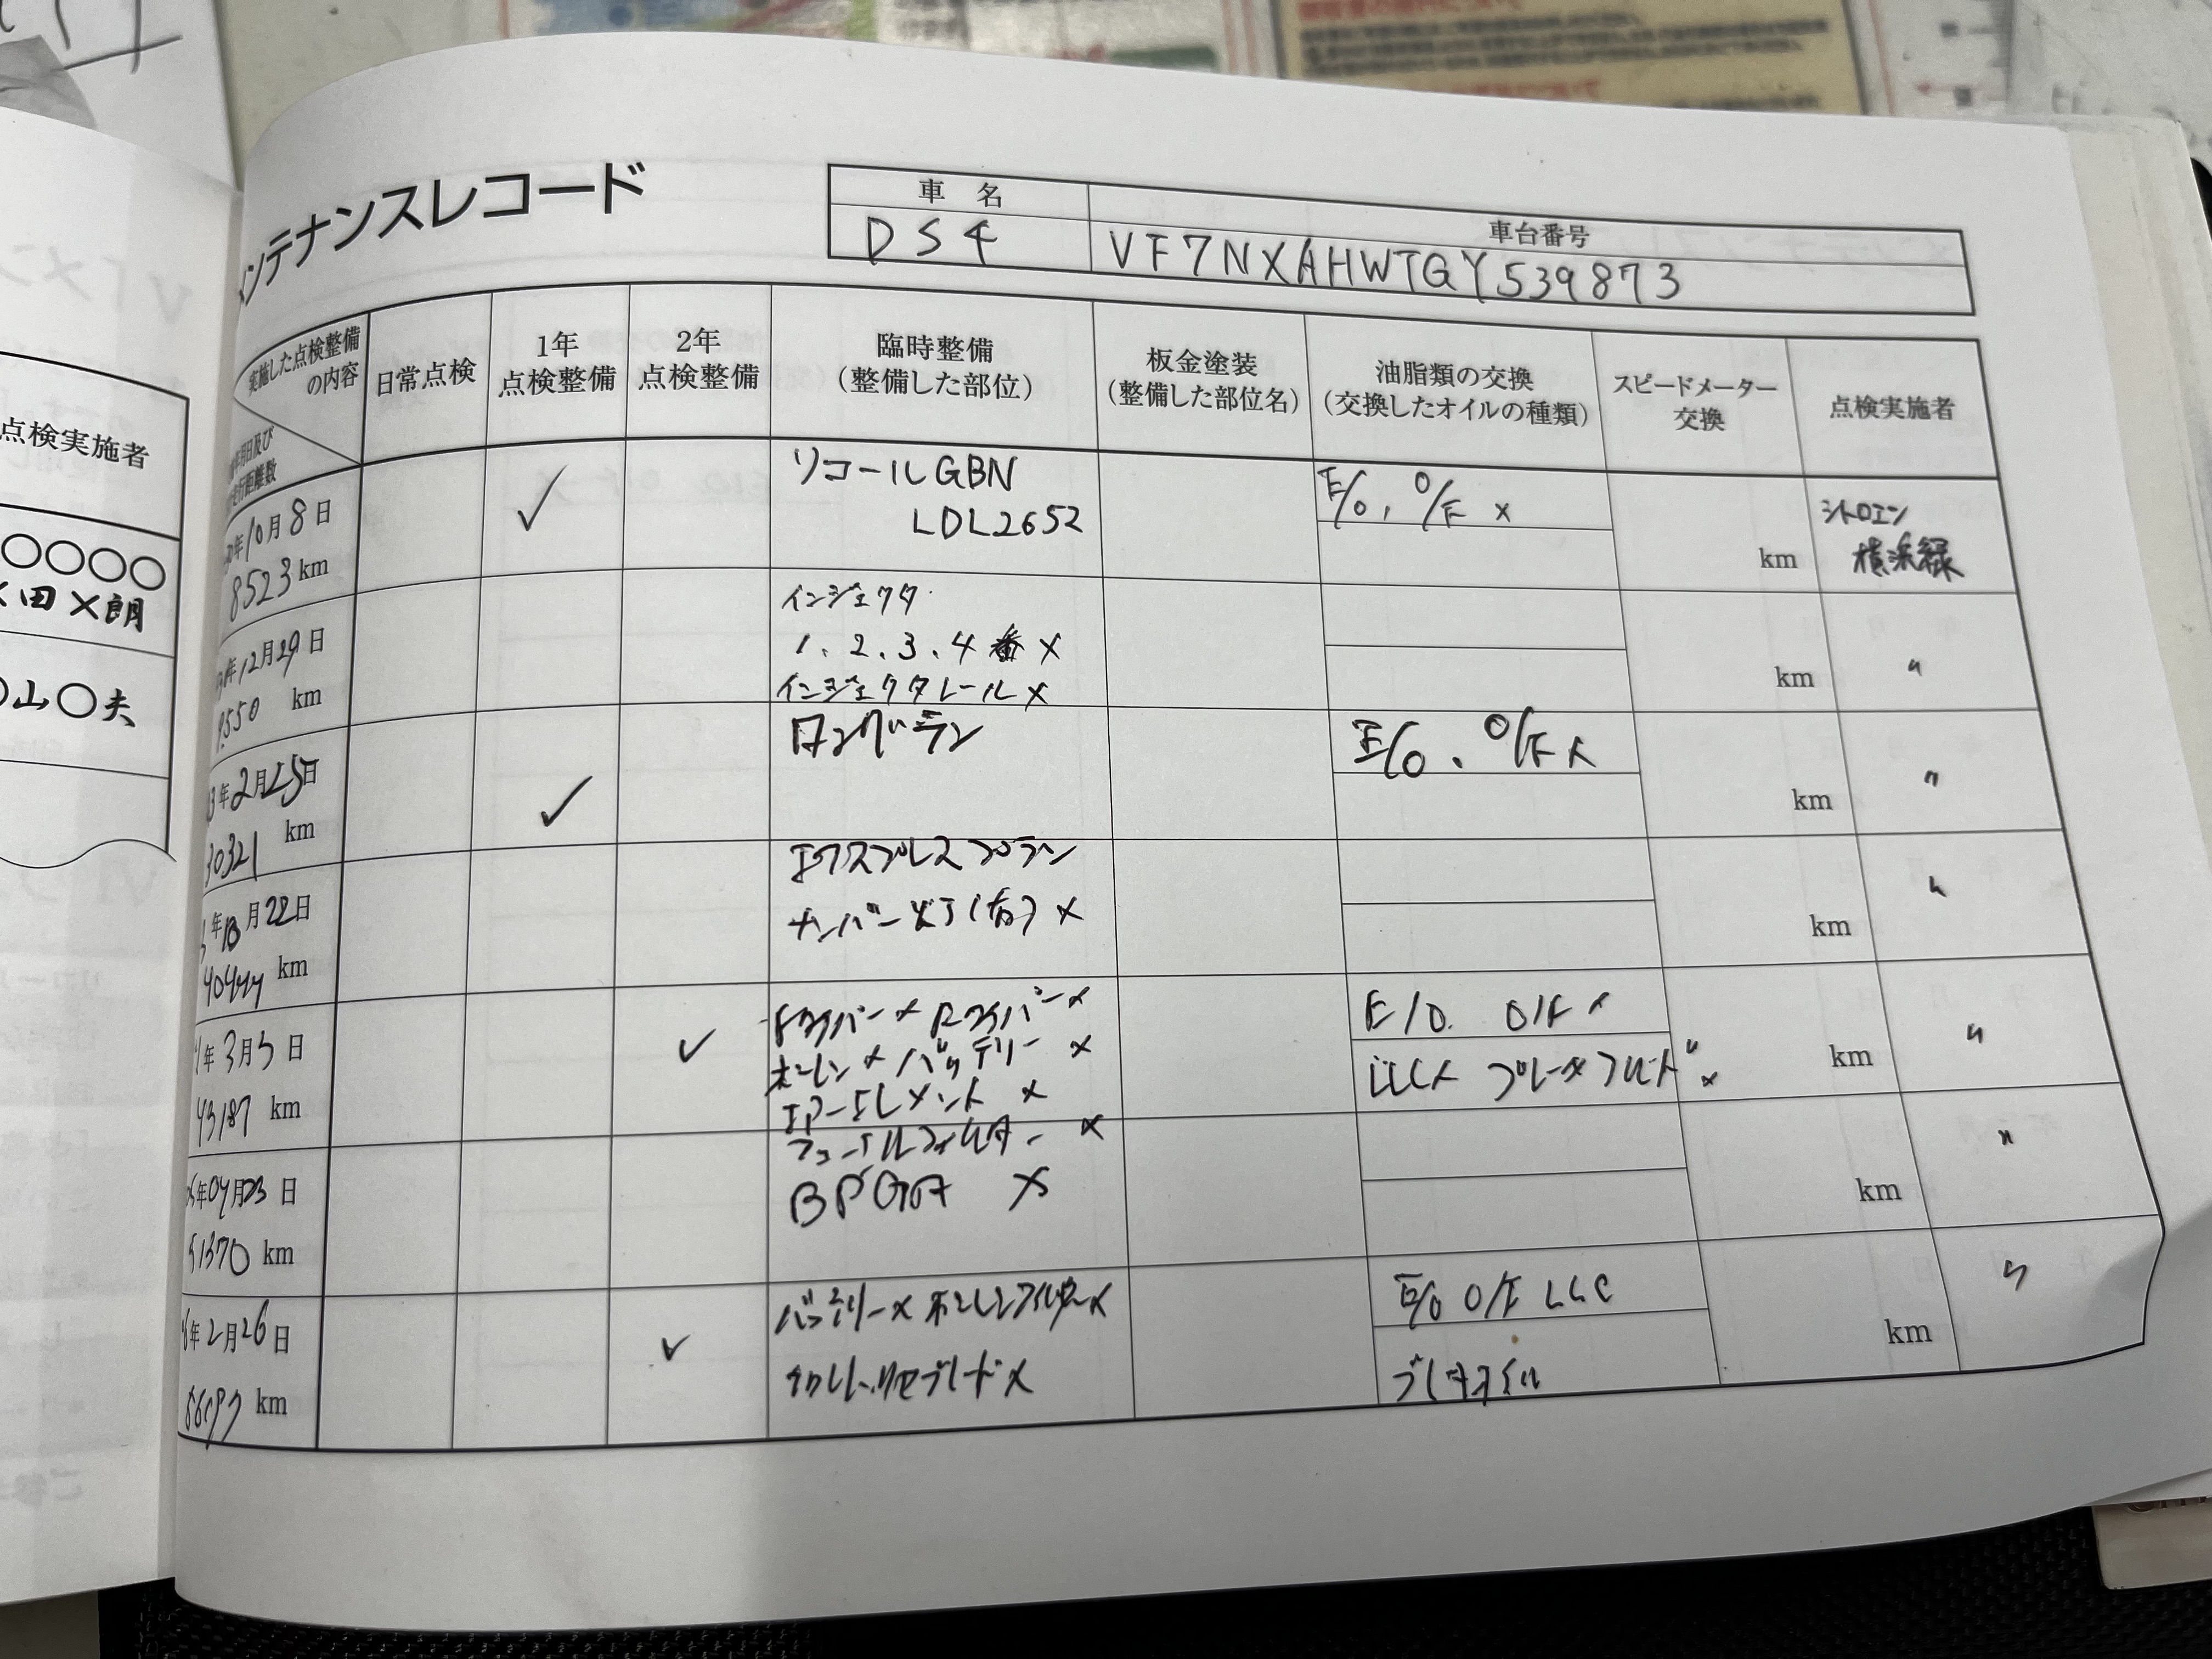 メンテナンスレコード
車名
車台番号
DS4
VF7NXAHWTGY539873
点検実施者
○○○○
×田×朗
○山○夫
実施した点検整備の内容
年月日及び
走行距離数
日常点検
1年
点検整備
2年
点検整備
臨時整備
(整備した部位)
板金塗装
(整備した部位名)
油脂類の交換
(交換したオイルの種類)
スピードメーター
交換
点検実施者
年10月8日
8523km
✓
リコールGBN
LDL2652
E/O, O/F ×
km
シトロエン
横浜緑
年12月29日
9550 km
インジェクタ
1.2.3.4番×
インジェクタレール×
km
〃
3年2月25日
30321 km
✓
ロングラン
E/O. O/F×
km
〃
年 月22日
km
エクスプレスプラン
ナンバー灯(右)×
km
〃
年3月5日
43187 km
✓
Fワイパー× Rワイパー×
ポーレン×バッテリー ×
エアーエレメント ×
フューエルフィルター ×
E/O. O/F×
LLC× ブレーキフルード×
km
〃
年04月23日
51370 km
BPGA ×
km
〃
年2月26日
km
✓
バッテリー× ポーレンフィルター×
E/O O/F LLC
ブレーキオイル
km
〃